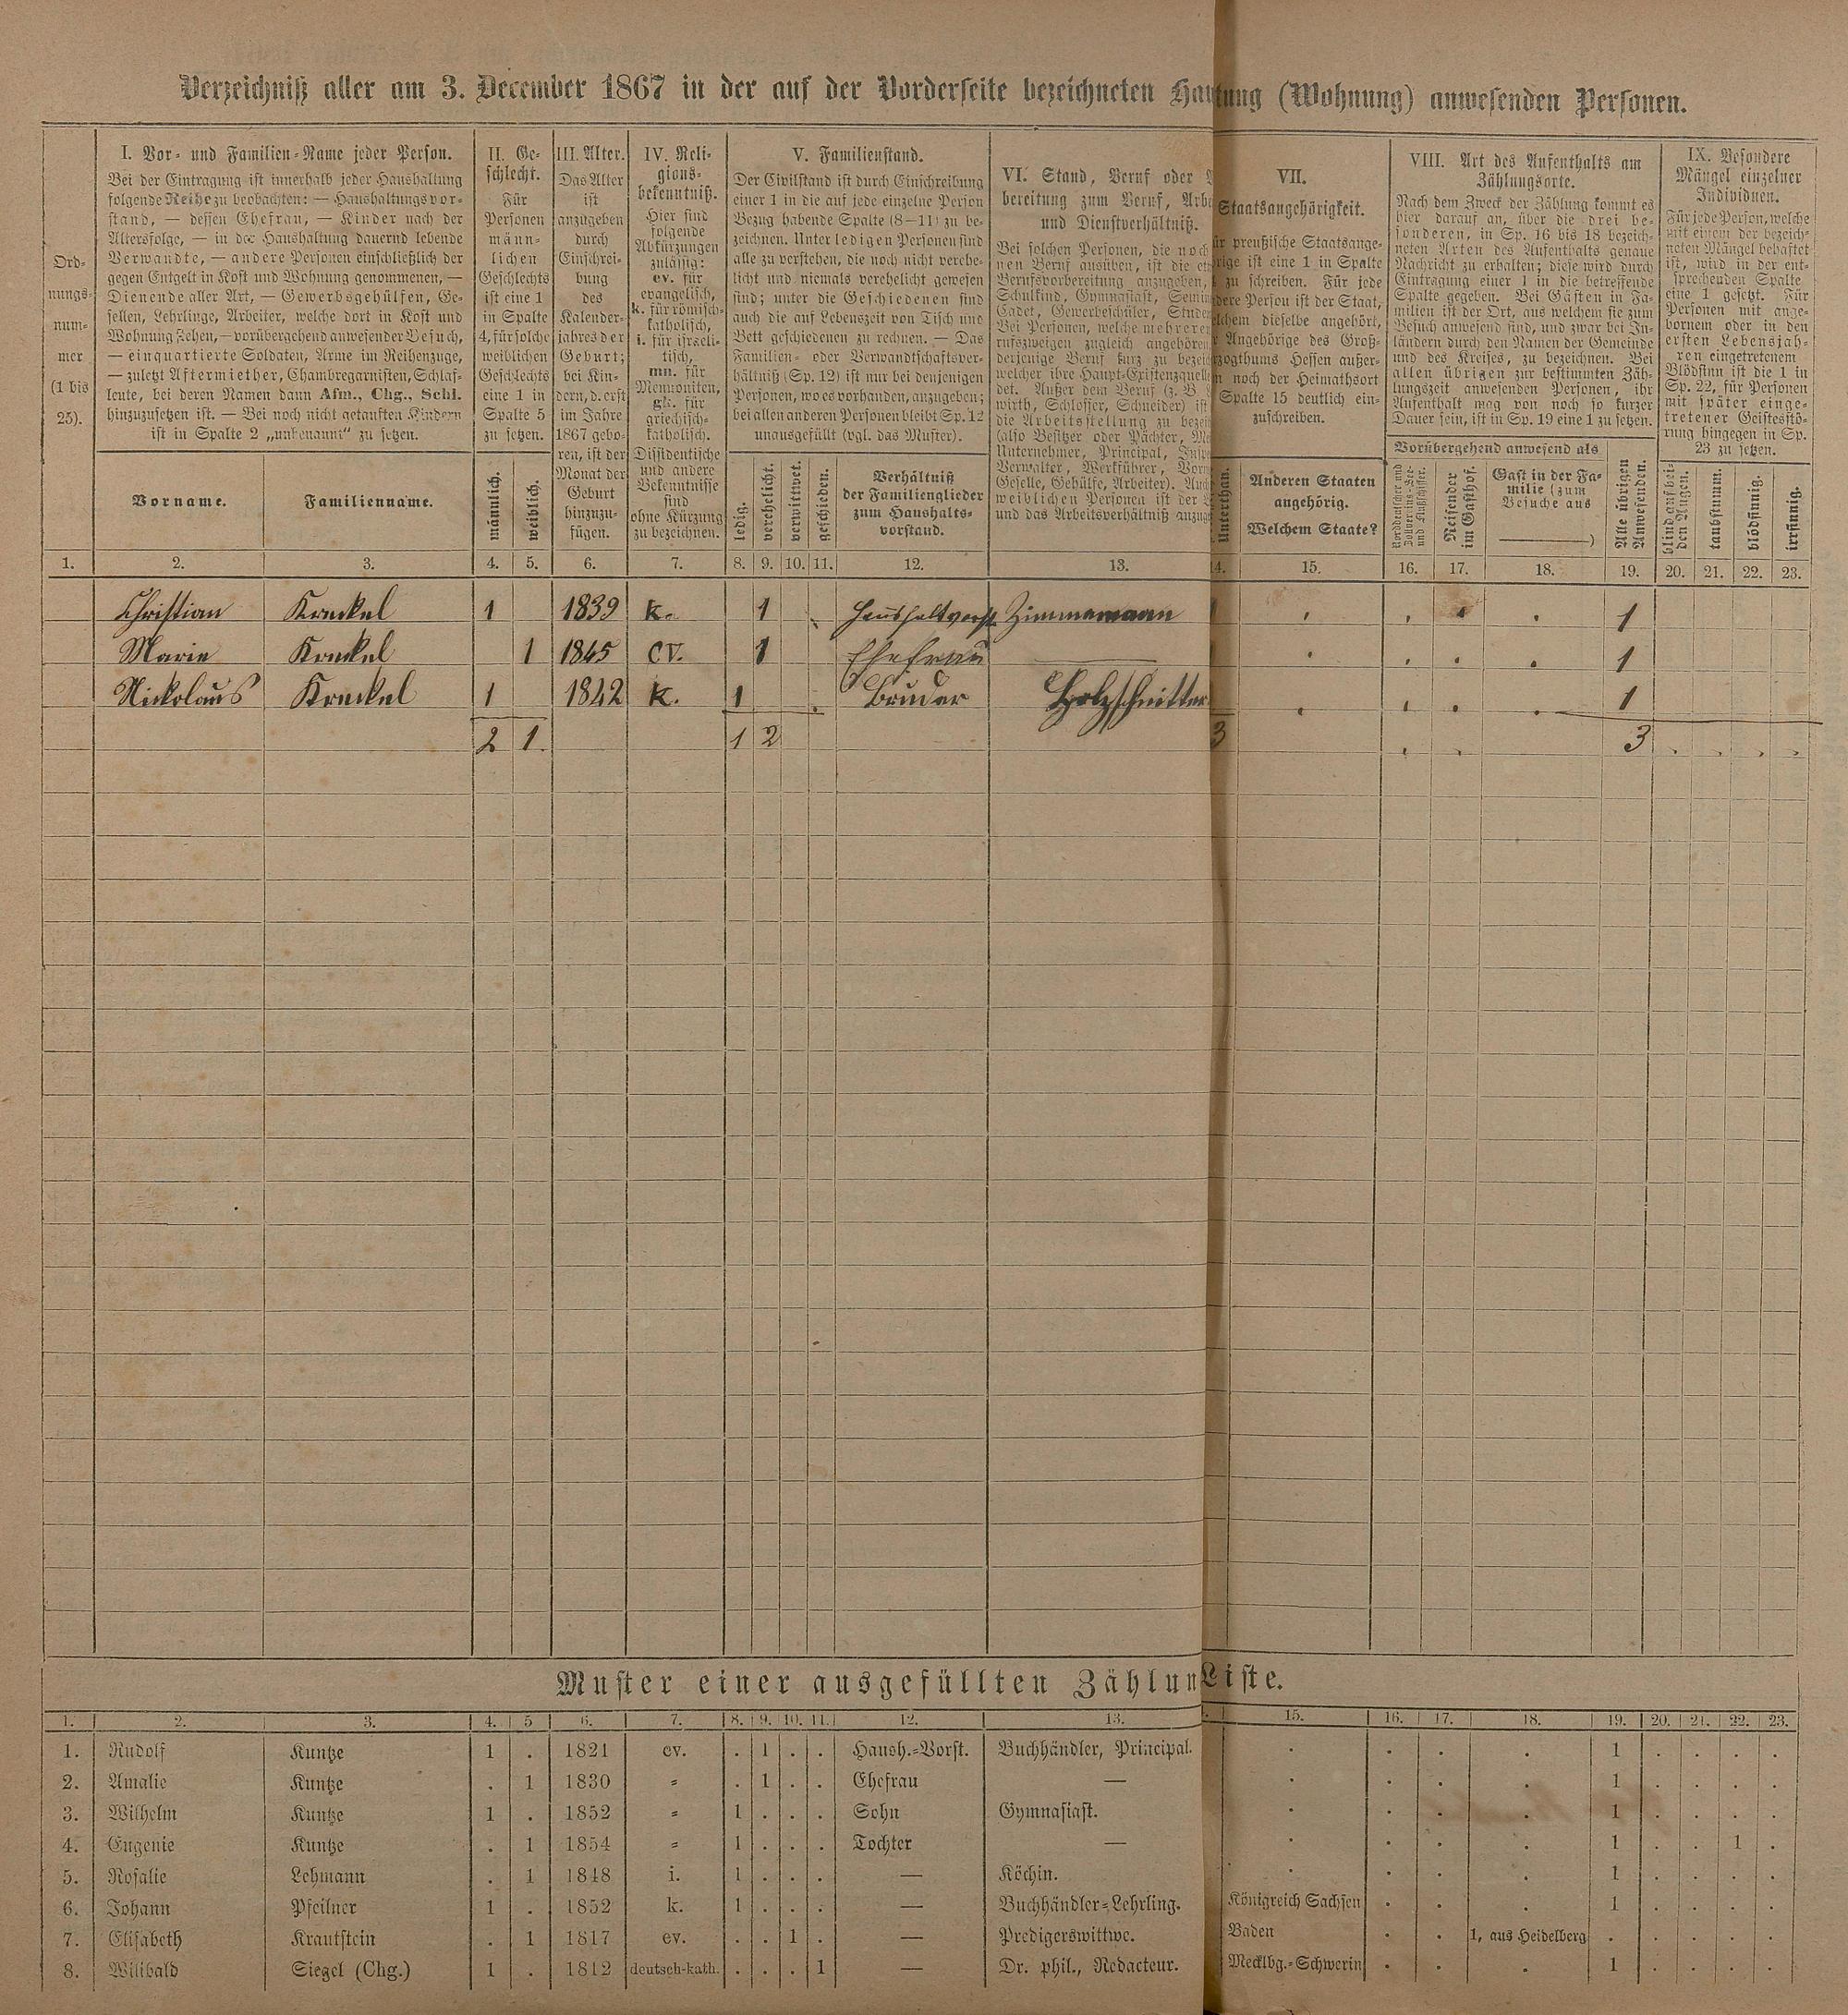 Verzeichniß aller am 3. December 1867 in der auf der Vorderseite bezeichneten Hau tung (Wohnung) anwesenden Personen.
Ord-
nungs-
num-
mer
(1 bis
25).
I. Vor- und Familien-Name jeder Person.
Bei der Eintragung ist innerhalb jeder Haushaltung
folgende Reihe zu beobachten: — Haushaltungsvor-
stand, — dessen Ehefrau, — Kinder nach der
Altersfolge, — in der Haushaltung dauernd lebende
Verwandte, — andere Personen einschließlich der
gegen Entgelt in Kost und Wohnung genommenen, —
Dienende aller Art, — Gewerbsgehülfen, Ge-
sellen, Lehrlinge, Arbeiter, welche dort in Kost und
Wohnung stehen, — vorübergehend anwesender Besuch,
— einquartierte Soldaten, Arme im Reihenzuge,
— zuletzt Aftermiether, Chambregarnisten, Schlaf-
leute, bei deren Namen dann Afm., Chg., Schl.
hinzuzusetzen ist. — Bei noch nicht getauften Kindern
ist in Spalte 2 „unbenannt“ zu setzen.
Vorname.
Familienname.
II. Ge-
schlecht.
Für
Personen
männ-
lichen
Geschlechts
ist eine 1
in Spalte
4, für solche
weiblichen
Geschlechts
eine 1 in
Spalte 5
zu setzen.
männlich.
weiblich.
III. Alter.
Das Alter
ist
anzugeben
durch
Einschrei-
bung
des
Kalender-
jahres der
Geburt;
bei Kin-
dern, d. erst
im Jahre
1867 gebo-
ren, ist der
Monat der
Geburt
hinzuzu-
fügen.
IV. Reli-
gions-
bekenntniß.
Hier sind
folgende
Abkürzungen
zulässig:
ev. für
evangelisch,
k. für römisch-
katholisch,
i. für israeli-
tisch,
mn. für
Mennoniten,
gk. für
griechisch-
katholisch.
Dissidentische
und andere
Bekenntnisse
sind
ohne Kürzung
zu bezeichnen.
V. Familienstand.
Der Civilstand ist durch Einschreibung
einer 1 in die auf jede einzelne Person
Bezug habende Spalte (8—11) zu be-
zeichnen. Unter ledigen Personen sind
alle zu verstehen, die noch nicht verehe-
licht und niemals verehelicht gewesen
sind; unter die Geschiedenen sind
auch die auf Lebenszeit von Tisch und
Bett geschiedenen zu rechnen. — Das
Familien- oder Verwandtschaftsver-
hältniß (Sp. 12) ist nur bei denjenigen
Personen, wo es vorhanden, anzugeben;
bei allen anderen Personen bleibt Sp. 12
unausgefüllt (vgl. das Muster).
ledig.
verehelicht.
verwittwet.
geschieden.
Verhältniß
der Familienglieder
zum Haushalts-
vorstand.
VI. Stand, Beruf oder
bereitung zum Beruf, Arbe
und Dienstverhältniß.
Bei solchen Personen, die noch
nen Beruf ausüben, ist die et
Berufsvorbereitung anzugeben,
Schulkind, Gymnasiast, Semin
Cadet, Gewerbeschüler, Studen
Bei Personen, welche mehreren
rufszweigen zugleich angehören
derjenige Beruf kurz zu bezeic
welcher ihre Haupt-Existenzquelle
det. Außer dem Beruf (z. B.
wirth, Schlosser, Schneider) ist
die Arbeitsstellung zu bezei
(also Besitzer oder Pächter, Me
Unternehmer, Principal, Inspe
Verwalter, Werkführer, Vorm
Geselle, Gehülfe, Arbeiter). Auch
weiblichen Personen ist der
und das Arbeitsverhältniß anzug
VII.
Staatsangehörigkeit.
ür preußische Staatsange-
rige ist eine 1 in Spalte
zu schreiben. Für jede
dere Person ist der Staat,
lchem dieselbe angehört,
r Angehörige des Groß-
zogthums Hessen außer-
n noch der Heimathsort
Spalte 15 deutlich ein-
zuschreiben.
Unterthan.
Anderen Staaten
angehörig.
Welchem Staate?
VIII. Art des Aufenthalts am
Zählungsorte.
Nach dem Zweck der Zählung kommt es
hier darauf an, über die drei be-
sonderen, in Sp. 16 bis 18 bezeich-
neten Arten des Aufenthalts genaue
Nachricht zu erhalten; diese wird durch
Eintragung einer 1 in die betreffende
Spalte gegeben. Bei Gästen in Fa-
milien ist der Ort, aus welchem sie zum
Besuch anwesend sind, und zwar bei In-
ländern durch den Namen der Gemeinde
und des Kreises, zu bezeichnen. Bei
allen übrigen zur bestimmten Zäh-
lungszeit anwesenden Personen, ihr
Aufenthalt mag von noch so kurzer
Dauer sein, ist in Sp. 19 eine 1 zu setzen.
Vorübergehend anwesend als
Norddeutscher und
Zollvereins-See-
und Flußschiffer.
Reisender
im Gasthof.
Gast in der Fa-
milie (zum
Besuche aus
)
Alle übrigen
Anwesenden.
IX. Besondere
Mängel einzelner
Individuen.
Für jede Person, welche
mit einem der bezeich-
neten Mängel behaftet
ist, wird in der ent-
sprechenden Spalte
eine 1 gesetzt. Für
Personen mit ange-
bornem oder in den
ersten Lebensjah-
ren eingetretenem
Blödsinn ist die 1 in
Sp. 22, für Personen
mit später einge-
tretener Geistesstö-
rung hingegen in Sp.
23 zu setzen.
blind auf bei-
den Augen.
taubstumm.
blödsinnig.
irrsinnig.
1. 2. 3. 4. 5. 6. 7. 8. 9. 10. 11. 12. 13. 4. 15. 16. 17. 18. 19. 20. 21. 22. 23.
Christian Krenkel 1 1839 K. 1 Haushaltvorst Zimmermann 1 1
Marie Krenkel 1 1845 ev. 1 Ehefrau — 1
Nickolaus Krenkel 1 1842 K. 1 Bruder Holzschnitter 1
2 1. 1 2 3 3
Muster einer ausgefüllten Zählun Liste.
1. 2. 3. 4. 5 6. 7. 8. 9. 10. 11. 12. 13. 15. 16. 17. 18. 19. 20. 21. 22. 23.
1. Rudolf Kuntze 1 . 1821 ev. . 1 . . Haush.-Vorst. Buchhändler, Principal. . . . . 1 . . . .
2. Amalie Kuntze . 1 1830 " . 1 . . Ehefrau — . . . . 1 . . . .
3. Wilhelm Kuntze 1 . 1852 " 1 . . . Sohn Gymnasiast. . . . . 1 . . . .
4. Eugenie Kuntze . 1 1854 " 1 . . . Tochter — . . . . 1 . . 1 .
5. Rosalie Lehmann . 1 1848 i. 1 . . . — Köchin. . . . . 1 . . . .
6. Johann Pfeilner 1 . 1852 k. 1 . . . — Buchhändler-Lehrling. Königreich Sachsen . . . 1 . . . .
7. Elisabeth Krautstein . 1 1817 ev. . . 1 . — Predigerswittwe. Baden . . 1, aus Heidelberg . . . . .
8. Wilibald Siegel (Chg.) 1 . 1812 deutsch-kath. . . . 1 — Dr. phil., Redacteur. Mecklbg.-Schwerin . . . 1 . . . .